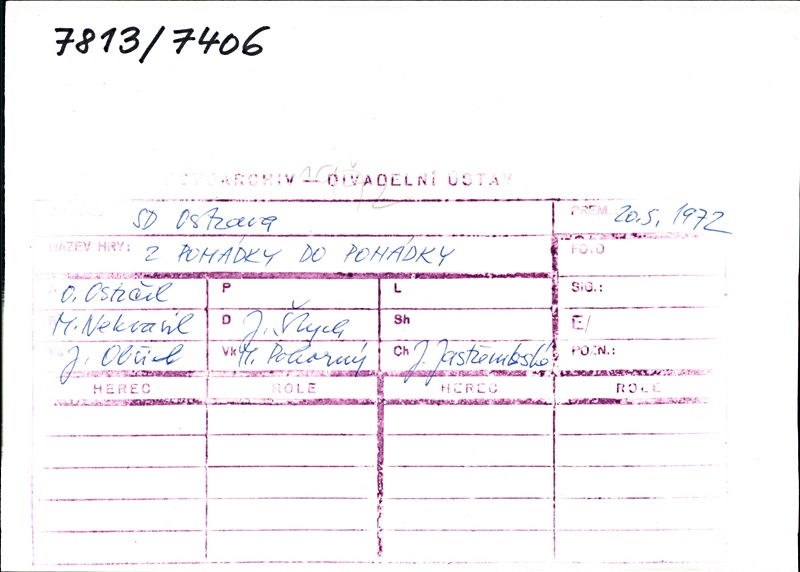 7813/7406
FOTOARCHIV — DIVADELNÍ ÚSTAV
SD Ostrava PREM. 20.5. 1972
NÁZEV HRY: Z POHÁDKY DO POHÁDKY FOTO
O. Ostrčil P L SIG.:
M. Nekvasil D J. Škych Sh E/
J. Obšil Vk M. Pokorný Ch J. Jastřembská POZN.:
HEREC ROLE HEREC ROLE